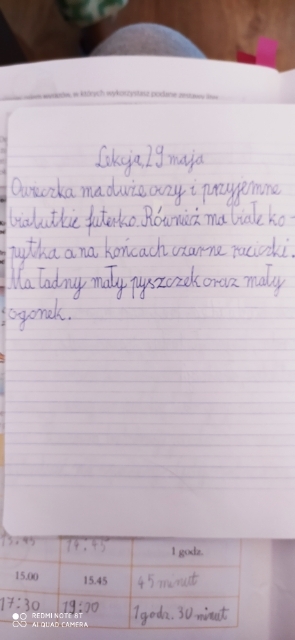 w których wykorzystasz podane
Lekcja, 29 maja
Owieczka ma duże oczy i przyjemne
bialutkie futerko. Również ma białe ko-
pytka a na końcach czarne raciczki.
Ma ładny mały pyszczek oraz mały
ogonek.
13:45 14:45 1 godz.
15.00 15.45 45 minut
17:30 19:00 1 godz. 30 minut
REDMI NOTE 8T
AI QUAD CAMERA